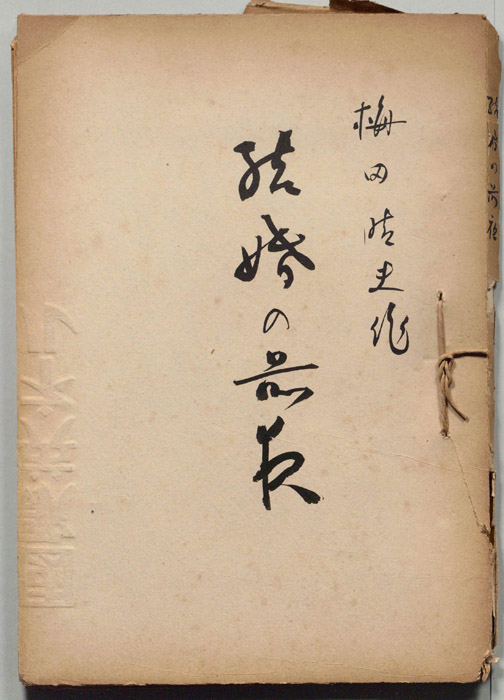 梅田晴夫作
結婚の前夜
結婚の前夜